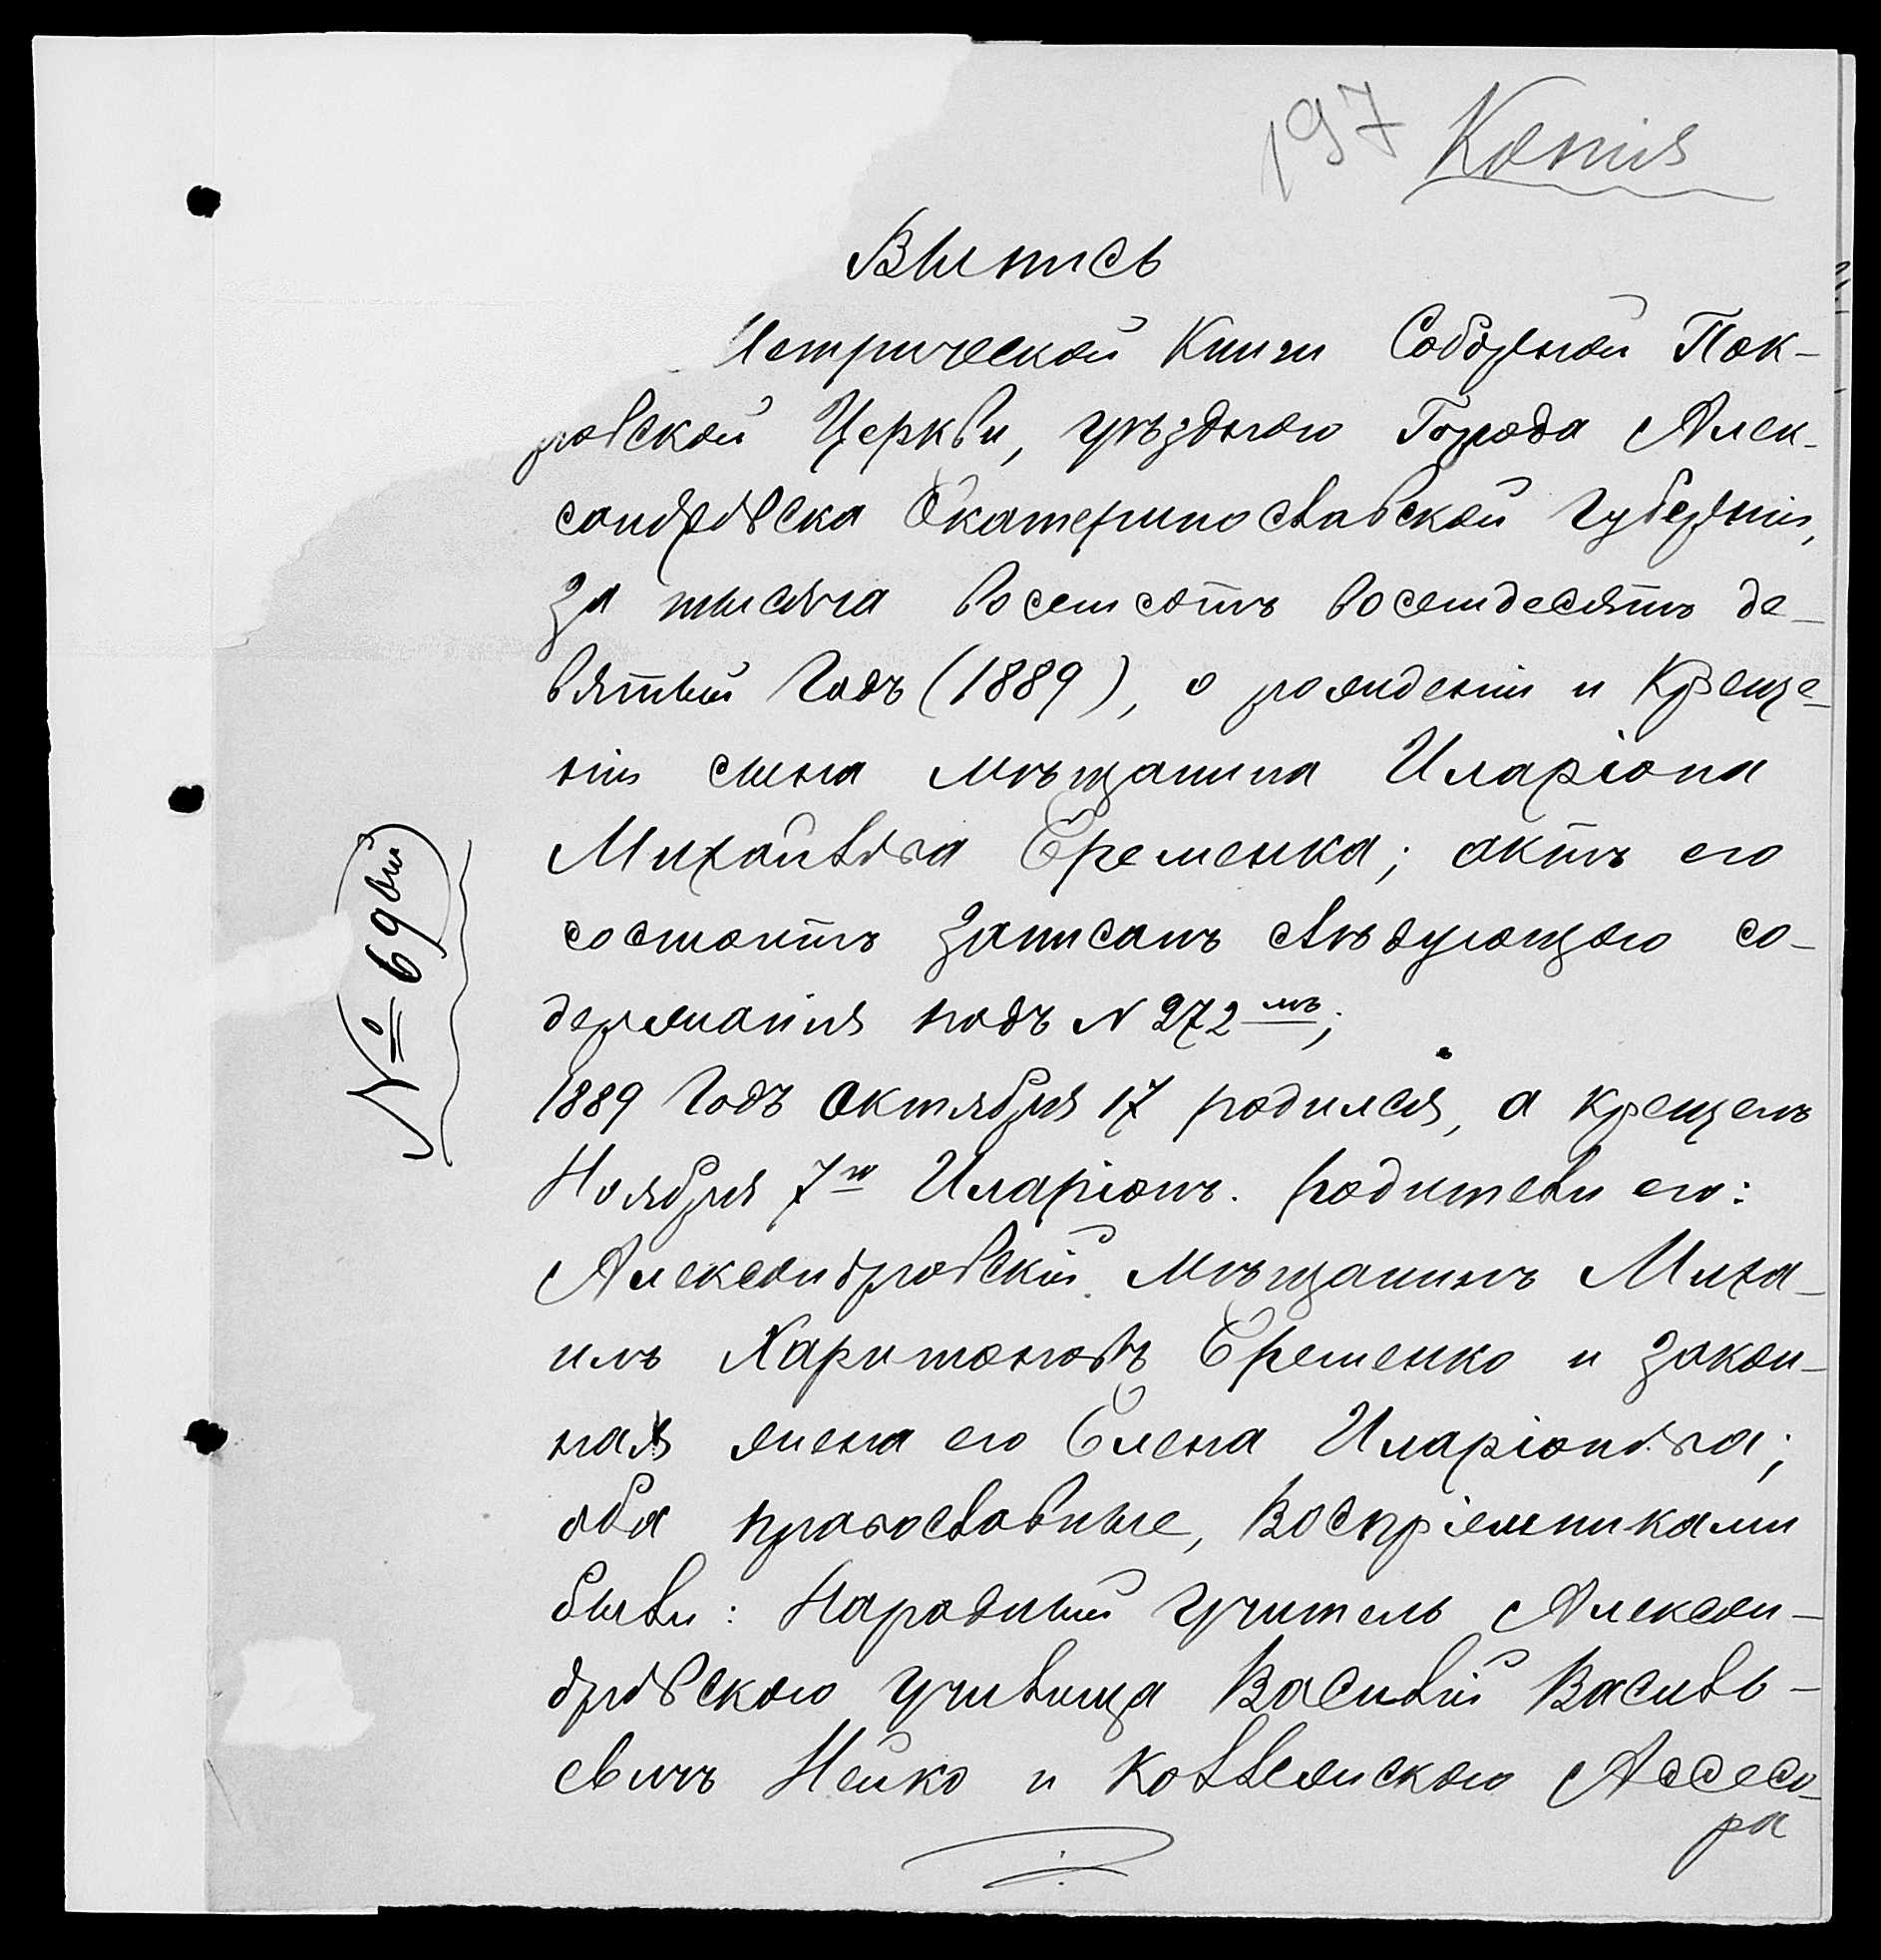 197 Копія
Выпись
Метрической Книги Соборной Пок-
ровской Церкви, уѣзднаго Города Алек-
сандровска Екатеринославской Губерніи,
за тысяча восемсотъ восемдесятъ де-
вятый Годъ (1889), о рожденіи и Креще-
ніи сына мѣщанина Иларіона
Михайлова Еременка; актъ его
состоитъ записанъ слѣдующаго со-
держанія подъ N 272 мъ;
1889 Годъ Октября 17 родился, а крещенъ
Ноября 7го Иларіонъ. Родители его:
Александровскій Мѣщанинъ Миха-
илъ Харитоновъ Еременко и закон-
ная жена его Елена Иларіонова;
оба православные, Воспріемниками
были: Народный Учитель Алексан-
дровскаго училища Василій Василь-
евичъ Нейко и Коллежскаго Ассесо-
ра
№ 69ый